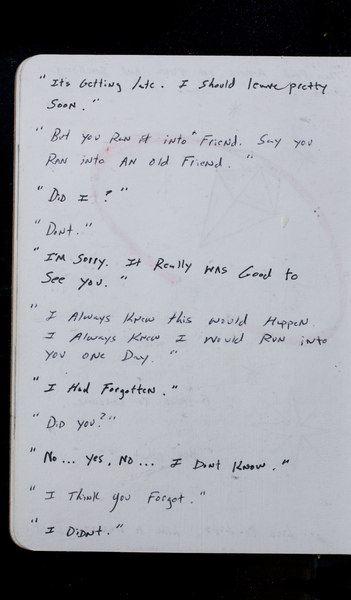 "Its Getting late. I should leave pretty
Soon."
"But you Run it into a Friend. Say you
Ran into An old Friend."
"Did I?"
"Dont."
"I'm Sorry. It Really was Good to
See you."
"I Always Knew this would Happen.
I Always Knew I would Run into
you one Day."
"I Had Forgotten."
"Did you?"
"No... yes, No... I Dont Know."
"I Think you Forgot."
"I Didnt."